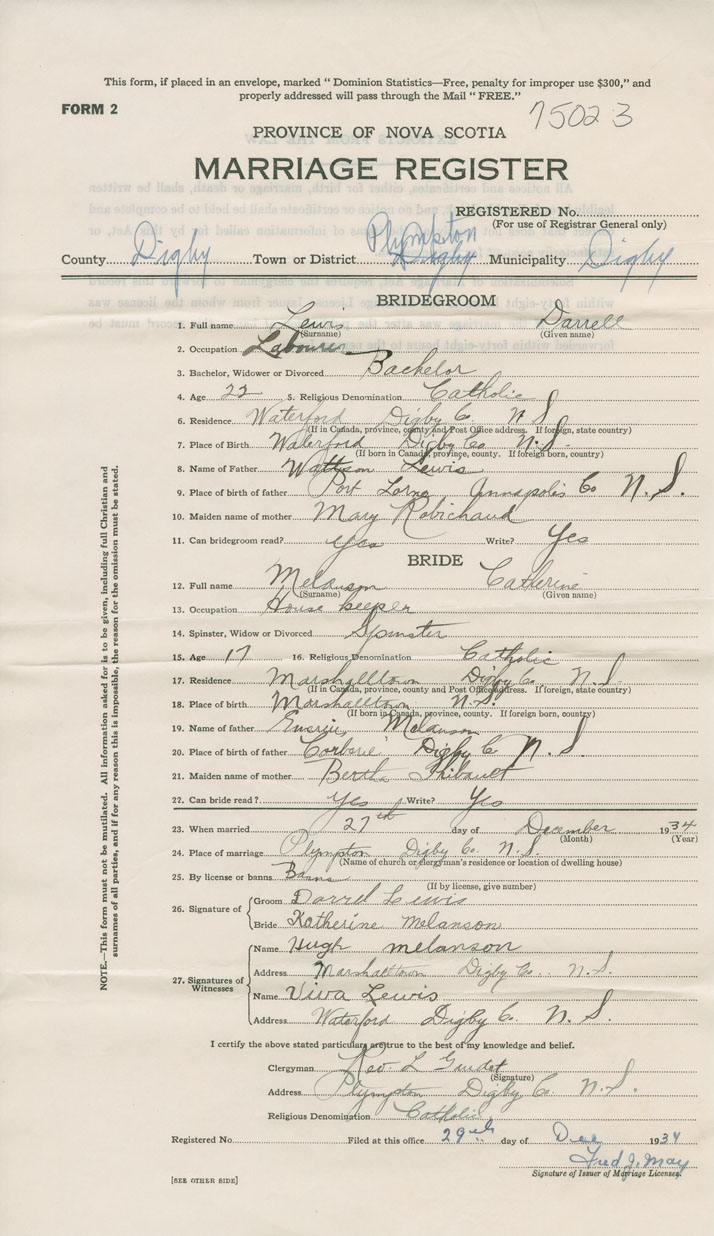 This form, if placed in an envelope, marked " Dominion Statistics—Free, penalty for improper use $300," and
properly addressed will pass through the Mail " FREE."
FORM 2
75023
PROVINCE OF NOVA SCOTIA
MARRIAGE REGISTER
REGISTERED No.
(For use of Registrar General only)
Plympton
County Digby Town or District Digby Municipality Digby
BRIDEGROOM
1. Full name Lewis Darrell
(Surname) (Given name)
2. Occupation Labourer
3. Bachelor, Widower or Divorced Bachelor
4. Age 22 5. Religious Denomination Catholic
6. Residence Waterford Digby Co. N. S.
(If in Canada, province, county and Post Office address. If foreign, state country)
7. Place of Birth Waterford Digby Co N. S.
(If born in Canada, province, county. If foreign born, country)
8. Name of Father Wattson Lewis
9. Place of birth of father Port Lorne Annapolis Co N. S.
10. Maiden name of mother Mary Robichaud
11. Can bridegroom read? Yes Write? Yes
BRIDE
12. Full name Melanson Catherine
(Surname) (Given name)
13. Occupation House keeper
14. Spinster, Widow or Divorced Spinster
15. Age 17 16. Religious Denomination Catholic
17. Residence Marshalltown Digby Co. N. S.
(If in Canada, province, county and Post Office address. If foreign, state country)
18. Place of birth Marshalltown N. S.
(If born in Canada, province, county. If foreign born, country)
19. Name of father Melanson
20. Place of birth of father Corberie Digby Co N. S.
21. Maiden name of mother Bertha Thibault
22. Can bride read? Yes Write? Yes
23. When married 27th day of December 1934
(Month) (Year)
24. Place of marriage Plympton Digby Co. N. S.
(Name of church or clergyman's residence or location of dwelling house)
25. By license or banns Banns
(If by license, give number)
26. Signature of
Groom Darrel Lewis
Bride Katherine Melanson
27. Signatures of Witnesses
Name Hugh melanson
Address Marshalltown Digby Co. N. S.
Name Viva Lewis
Address Waterford Digby Co. N. S.
I certify the above stated particulars are true to the best of my knowledge and belief.
Clergyman Rev. L Gudet
(Signature)
Address Plympton Digby Co. N. S.
Religious Denomination Catholic
Registered No. Filed at this office 29th day of Dec 1934
Fred J. May
Signature of Issuer of Marriage Licenses.
[SEE OTHER SIDE]
NOTE.—This form must not be mutilated. All information asked for is to be given, including full Christian and
surnames of all parties, and if for any reason this is impossible, the reason for the omission must be stated.